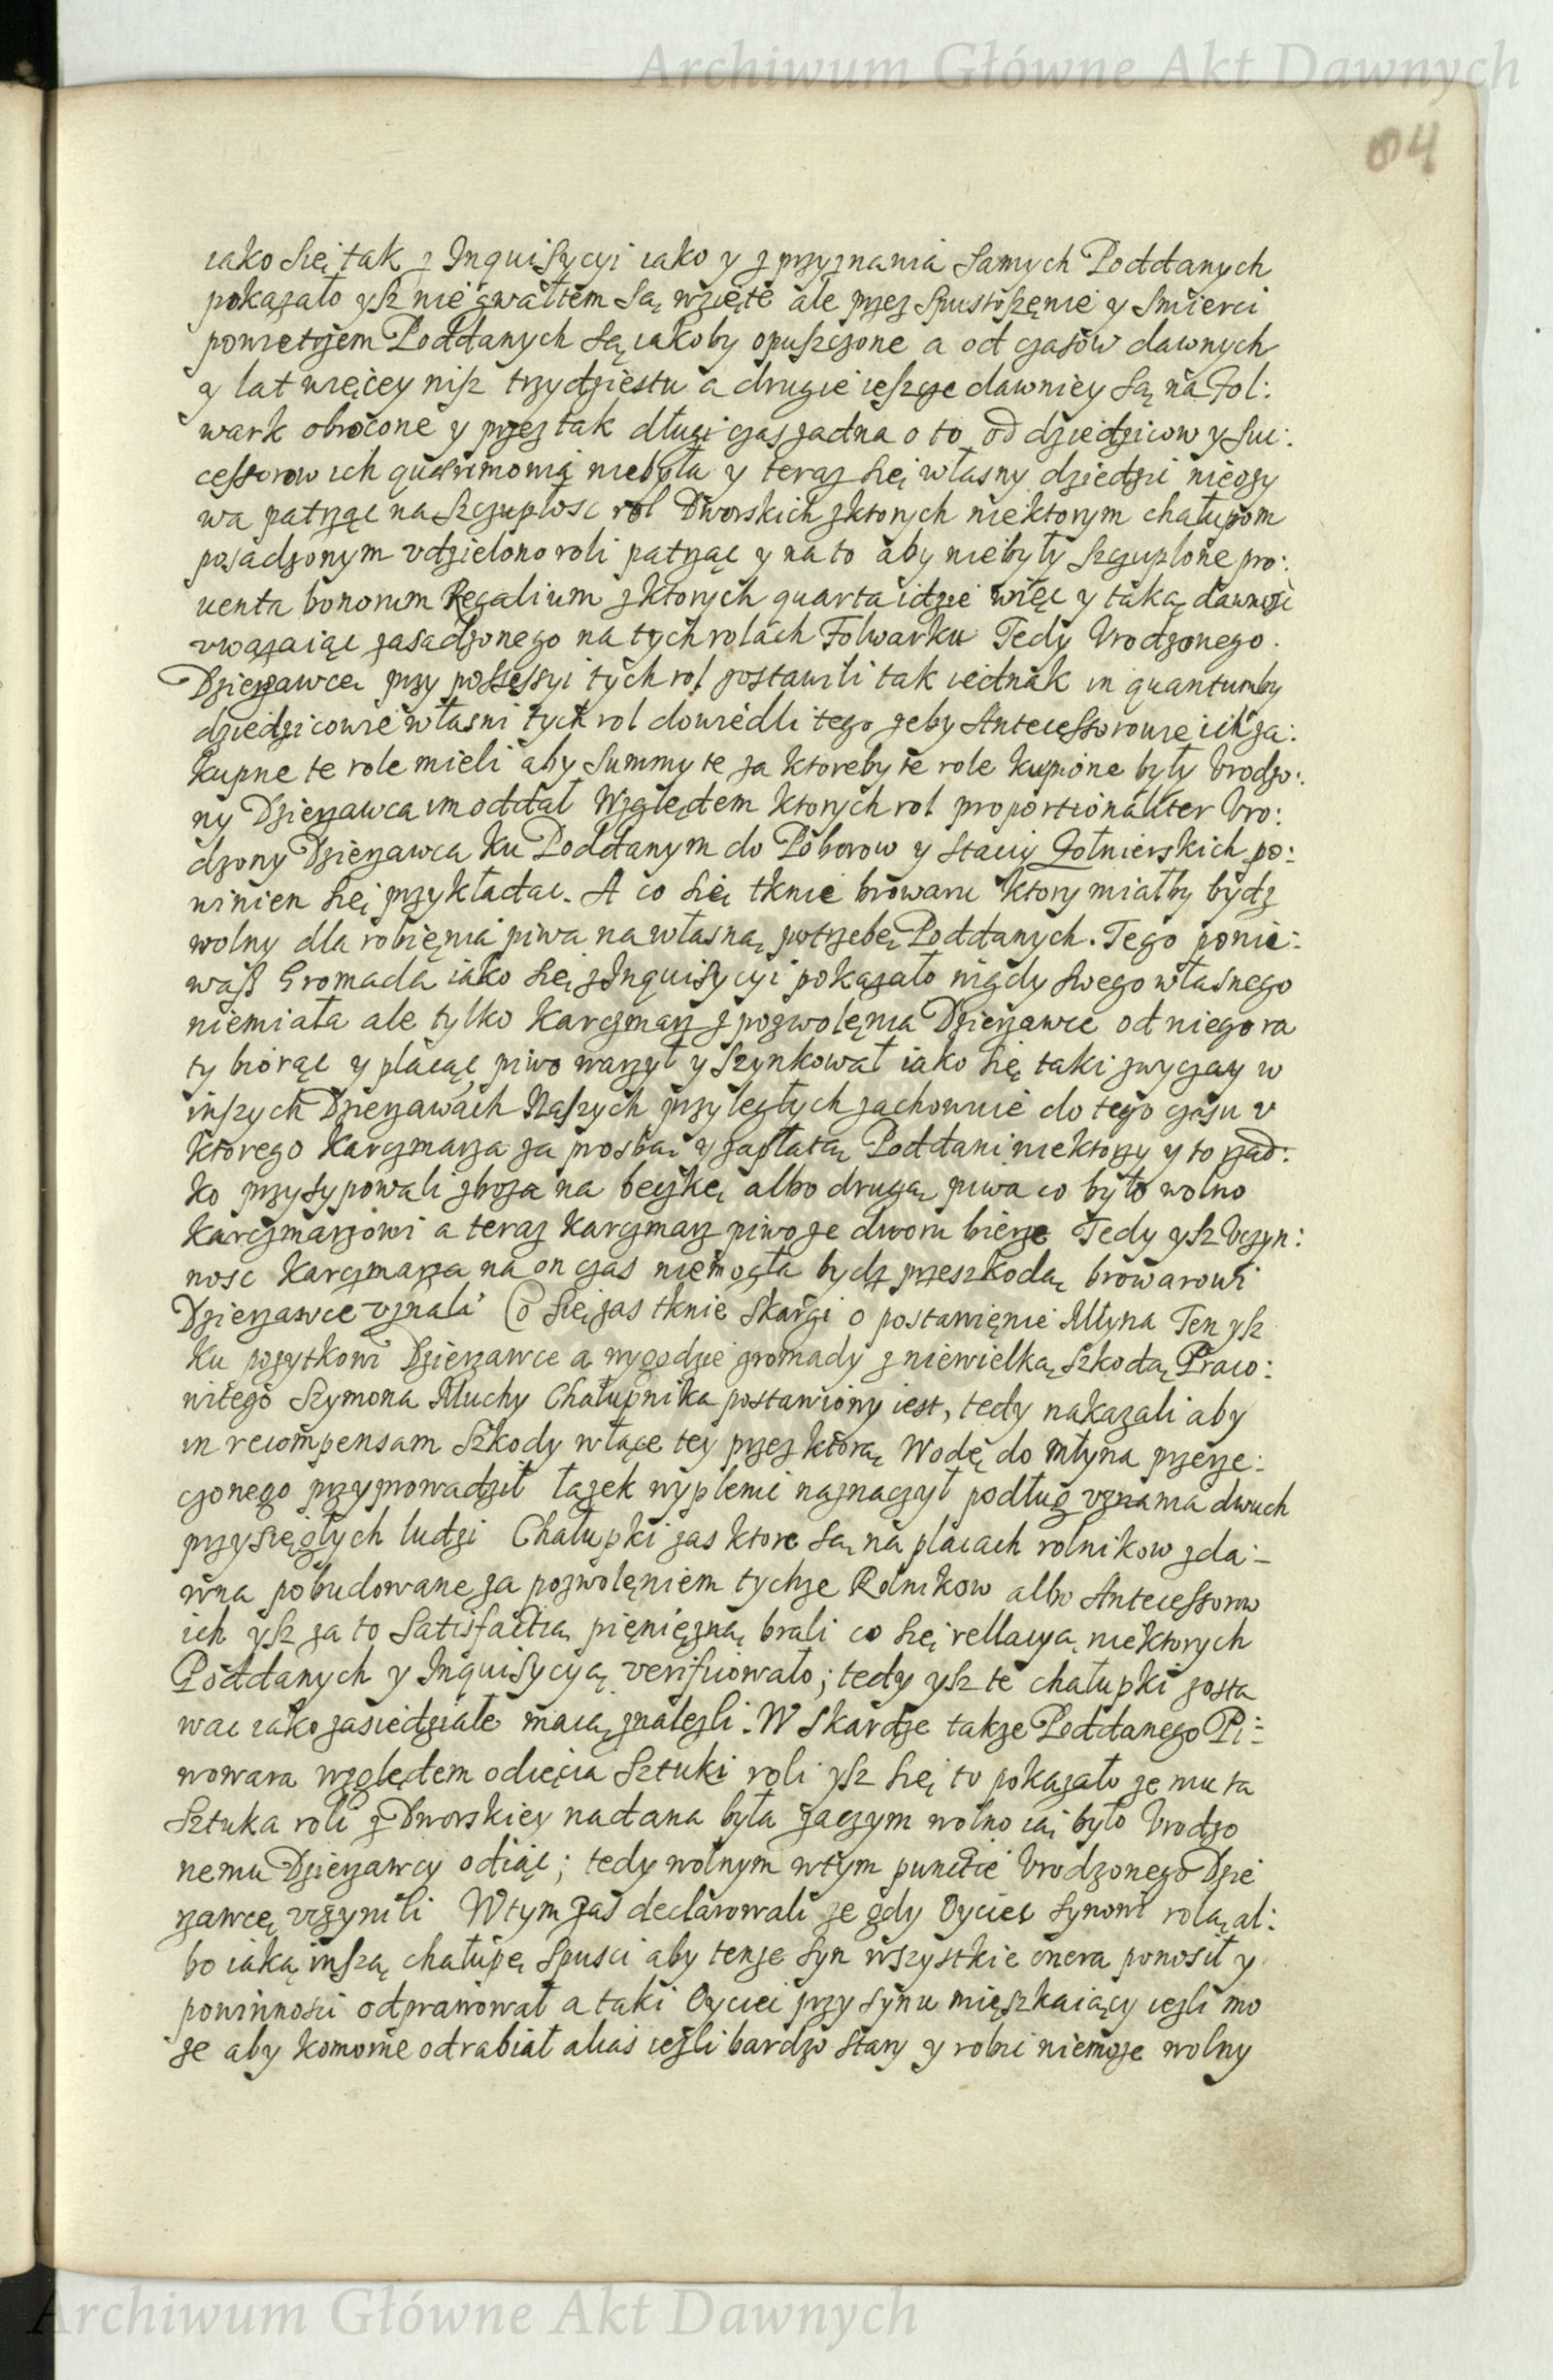 Archiwum Główne Akt Dawnych
04
iako się tak z Inquisycyi iako y z przyznania samych Poddanych
pokazało ysz nie gwałtem są wzięte ale przez spustoszęnie y smierci
powietrzem Poddanych są iakoby opuszczone a od czasów dawnych
y lat więcey nisz trzydziestu a drugie ieszcze dawniey są na Fol:
wark obrocone y przez tak długi czas zadna o to od dziedzicow y suc:
cessorow ich querimonią niebyła y teraz się własny dziedzic nieozy
wa patrząc na szczupłosc rol Dworskich z ktorych niektorym chałupom
posadzonym vdzielono roli patrząc y na to aby niebyły szczuplone pro:
uenta bonorum Regalium z ktorych quarta idzie więc y taką dawnosc
vwazaiąc zasadzonego na tych rolach Folwarku Tedy Vrodzonego
Dzierzawcę przy possessyi tych rol zostawili tak iednak in quantumby
dziedzicowie własni tych rol dowiedli tego zeby Antecessorowie ich za:
kupne te role mieli aby summy te za ktoreby te role kupione były Vrodzo:
ny Dzierzawca im oddał Względem ktorych rol proportionaliter Vro:
dzony Dzierzawca ku Poddanym do Poborow y stacij Zołnierskich po:
winien się przykładac. A co się tknie browaru ktory miałby bydz
wolny dla robięnia piwa na własną potrzebę Poddanych. Tego ponie:
wasz Gromada iako się z Inquisycyi pokazało nigdy swego własnego
niemiała ale tylko Karczmarz z pozwolęnia Dzierzawce od niego ra
ty biorąc y płacąc piwo warzył y szynkował iako się taki zwyczay w
inszych Dzierzawach Naszych przyległych zachowuie do tego czasu v
ktorego Karczmarza za prosbą y zapłatą Poddani niektorzy y to rzad:
ko przysypowali zboza na beczkę albo drugą piwa co było wolno
Karczmarzowi a teraz Karczmarz piwo ze dworu bierze Tedy ysz Vczyn:
nosc Karczmarza na on czas niemogła bydz przeszkodą browarowi
Dzierzawce vznali Co się zas tknie skargi o postawięnie Młyna Ten ysz
ku pozytkowi Dzierzawce a wygodzie gromady z niewielką szkodą Praco:
witego Szymona Muchy Chałupnika postawiony iest, tedy nakazali aby
in recompensam szkody włące tey przez ktorą Wodę do młyna przerze:
czonego przyprowadził łazek wyplenic naznaczył podług vznania dwuch
przysięgłych ludzi Chałupki zas ktore są na placach rolnikow zda:
wna pobudowane za pozwolęniem tychze Rolnikow albo Antecessorow
ich ysz za to satisfactią pięnięzną brali co się rellacyą niektorych
Poddanych y Inquisycyą verificowało; tedy ysz te chałupki zosta
wac iako zasiedziałe maią znalezli. W skardze takze Poddanego Pi:
wowara względem odięcia sztuki roli ysz się to pokazało ze mu ta
sztuka roli z Dworskiey nadana była zaczym wolno ią było Vrodzo
nemu Dzierzawcy odiąc; tedy wolnym w tym punctie Vrodzonego Dzie
rzawcę vczynili W tym zas declarowali ze gdy Oyciec synowi rolą al:
bo iaką inszą chałupę spusci aby tenze syn wszystkie onera ponosił y
powinnosci odprawował a taki Oyciec przy synu mięszkaiący iezli mo
ze aby komorne odrabiał alias iezli bardzo stary y robic niemoze wolny
Archiwum Główne Akt Dawnych